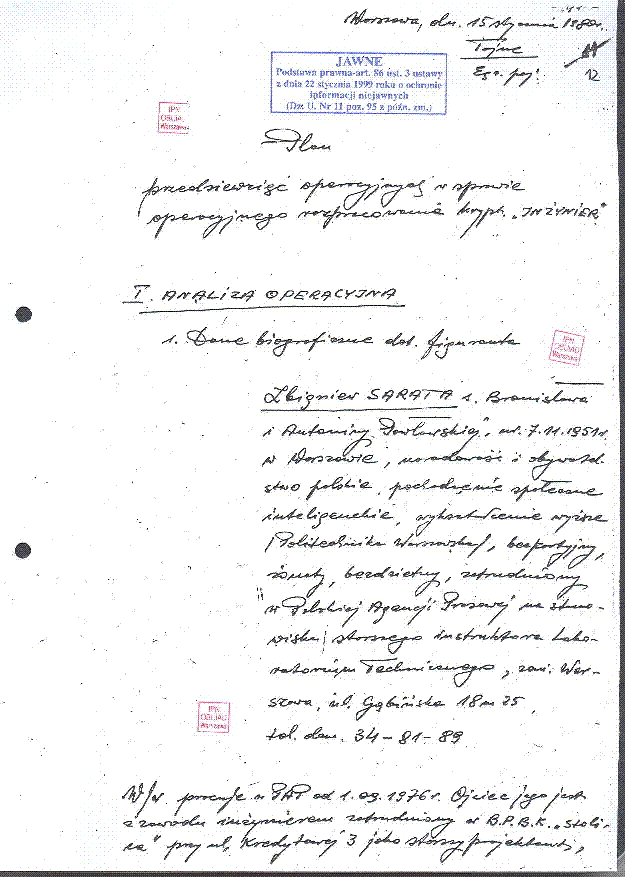 Warszawa, dn. 15 stycznia 1980r.
Tajne
Egz. poj.
12
JAWNE
Podstawa prawna-art. 86 ust. 3 ustawy
z dnia 22 stycznia 1999 roku o ochronie
informacji niejawnych
(Dz. U. Nr 11 poz. 95 z późn. zm.)
IPN
OBUiAD
Warszawa
Plan
przedsięwzięć operacyjnych w sprawie
operacyjnego rozpracowania krypt. „INŻYNIER"
I. ANALIZA OPERACYJNA
1. Dane biograficzne dot. figuranta
IPN
OBUiAD
Warszawa
Zbigniew SARATA s. Bronisława
i Antoniny Pawłowskiej, ur. 7.11.1951r.
w Warszawie, narodowość i obywatel-
stwo polskie, pochodzenie społeczne
inteligenckie, wykształcenie wyższe
/Politechnika Warszawska/, bezpartyjny,
żonaty, bezdzietny, zatrudniony
w Polskiej Agencji Prasowej na stano-
wisku starszego instruktora Labo-
ratorium Technicznego, zam. War-
szawa, ul. Gąbińska 18 m 25,
tel. dom. 34-81-89
IPN
OBUiAD
Warszawa
W/w pracuje w PAP od 1.09.1976r. Ojciec jego jest
z zawodu inżynierem zatrudniony w B.P.B.K. „Stoli-
ca" przy ul. Kredytowej 3 jako starszy projektant,